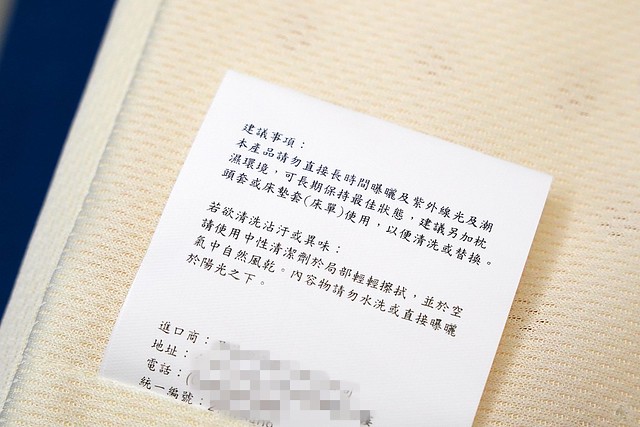 建議事項：
本產品請勿直接長時間曝曬及紫外線光及潮
濕環境，可長期保持最佳狀態，建議另加枕
頭套或床墊套(床單)使用，以便清洗或替換。
若欲清洗沾汙或異味：
請使用中性清潔劑於局部輕輕擦拭，並於空
氣中自然風乾。內容物請勿水洗或直接曝曬
於陽光之下。
進口商：
地址：
電話：(
統一編號：2